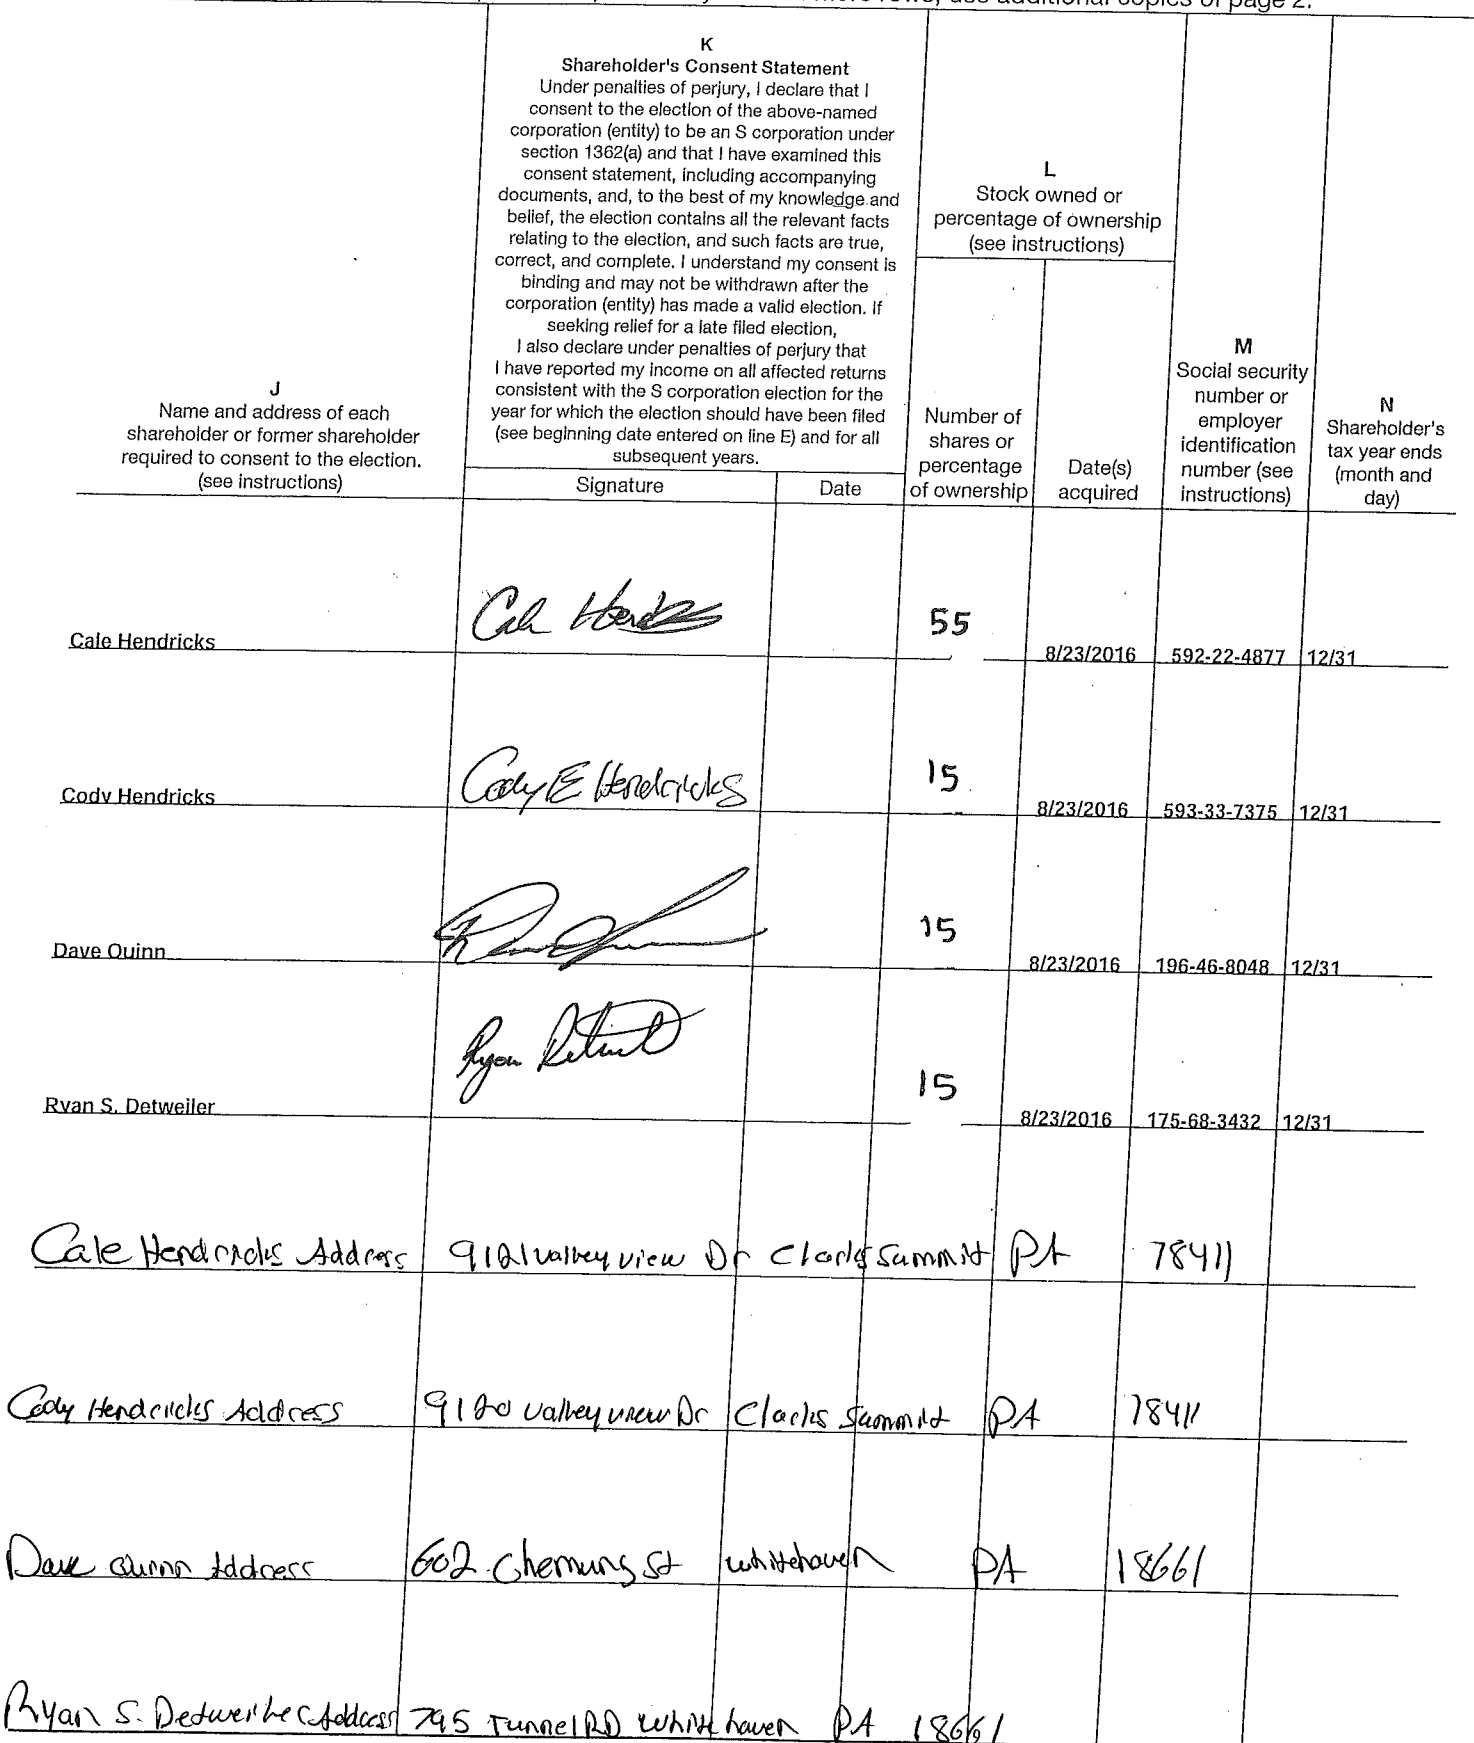 use additional copies of page 2.
K
Shareholder's Consent Statement
Under penalties of perjury, I declare that I
consent to the election of the above-named
corporation (entity) to be an S corporation under
section 1362(a) and that I have examined this
consent statement, including accompanying
documents, and, to the best of my knowledge and
belief, the election contains all the relevant facts
relating to the election, and such facts are true,
correct, and complete. I understand my consent is
binding and may not be withdrawn after the
corporation (entity) has made a valid election. If
seeking relief for a late filed election,
I also declare under penalties of perjury that
I have reported my income on all affected returns
consistent with the S corporation election for the
year for which the election should have been filed
(see beginning date entered on line E) and for all
subsequent years.
J
Name and address of each
shareholder or former shareholder
required to consent to the election.
(see instructions)
Signature
Date
L
Stock owned or
percentage of ownership
(see instructions)
Number of
shares or
percentage
of ownership
Date(s)
acquired
M
Social security
number or
employer
identification
number (see
instructions)
N
Shareholder's
tax year ends
(month and
day)
Cale Hendricks 55 8/23/2016 592-22-4877 12/31
Cody Hendricks Cody E Hendricks 15 8/23/2016 593-33-7375 12/31
Dave Quinn 15 8/23/2016 196-46-8048 12/31
Ryan S. Detweiler 15 8/23/2016 175-68-3432 12/31
Cale Hendricks Address 9121 valley view Dr Clarks Summit PA 78411
Cody Hendricks Address 9120 valley view Dr Clarks Summit PA 78411
Dave Quinn Address 602 Chemung St whitehaven PA 18661
Ryan S. Detweiler Address 795 Tunnel RD Whitehaven PA 18661